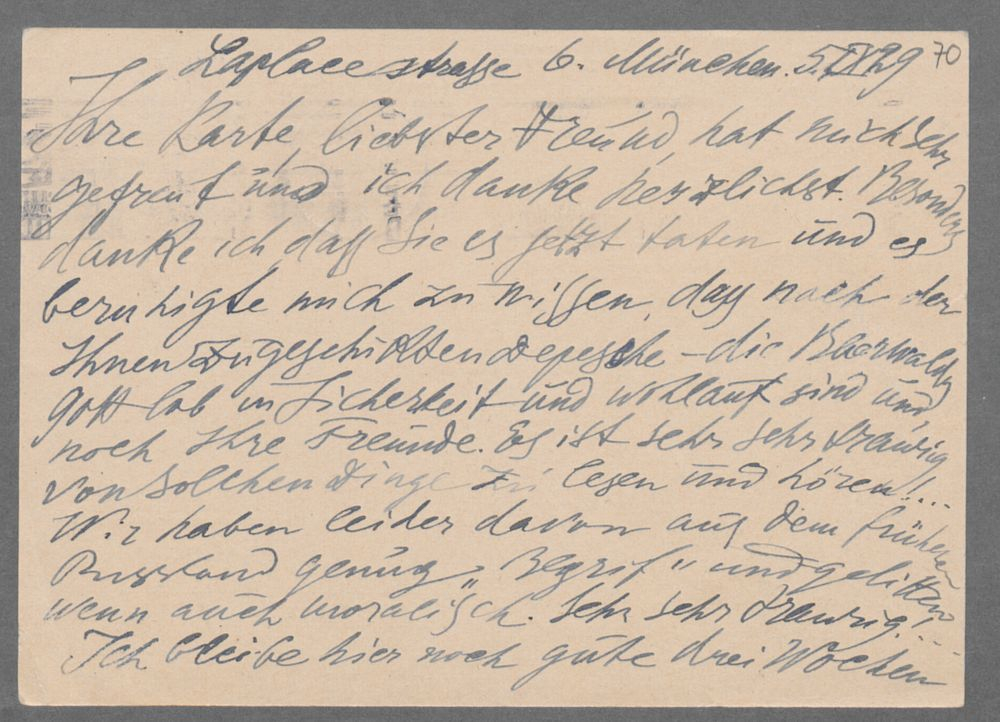 70
Laplace strasse 6. München. 5.IX29
Ihre Karte, liebster Freund, hat mich sehr
gefreut und ich danke herzlichst. Besonders
danke ich daß Sie es jetzt taten und es
beruhigte mich zu wissen, dass nach der
Ihnen zugeschikten Depesche – die Baerwalds
Gott lob in Sicherheit und wohlauf sind und
noch Ihre Freunde. Es ist sehr sehr traurig
von solchen Dinge zu lesen und hören!...
Wir haben leider davon aus dem früheren
Russland genug „Begrif" und gelitten
wenn auch moralisch. Sehr sehr traurig...
Ich bleibe hier noch gute drei Wochen